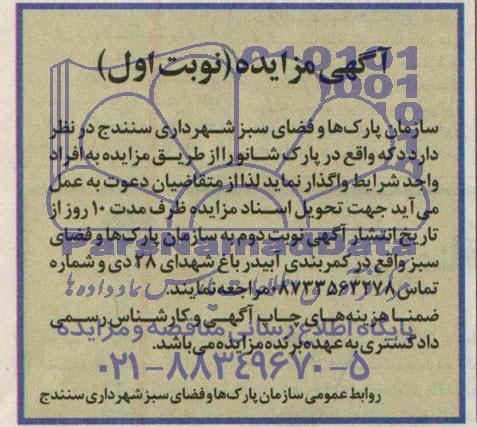 آگهی مزایده (نوبت اول)
سازمان پارک‌ها و فضای سبز شهرداری سنندج در نظر
دارد دکه واقع در پارک شانو را از طریق مزایده به افراد
واجد شرایط واگذار نماید لذا از متقاضیان دعوت به عمل
می آید جهت تحویل اسناد مزایده ظرف مدت ۱۰ روز از
تاریخ انتشار آگهی نوبت دوم به سازمان پارک‌ها و فضای
سبز واقع در کمربندی آبیدر باغ شهدای ۲۸ دی و شماره
تماس ۰۸۷۳۳۵۶۳۲۷۸ مراجعه نمایند.
ضمنا هزینه‌های چاپ آگهی و کارشناس رسمی
دادگستری به عهده برنده مزایده می باشد.
روابط عمومی سازمان پارک‌ها و فضای سبز شهرداری سنندج
ParsNamadData
پایگاه اطلاع رسانی مناقصه و مزایده
۰۲۱-۸۸۳۴۹۶۷۰-۵